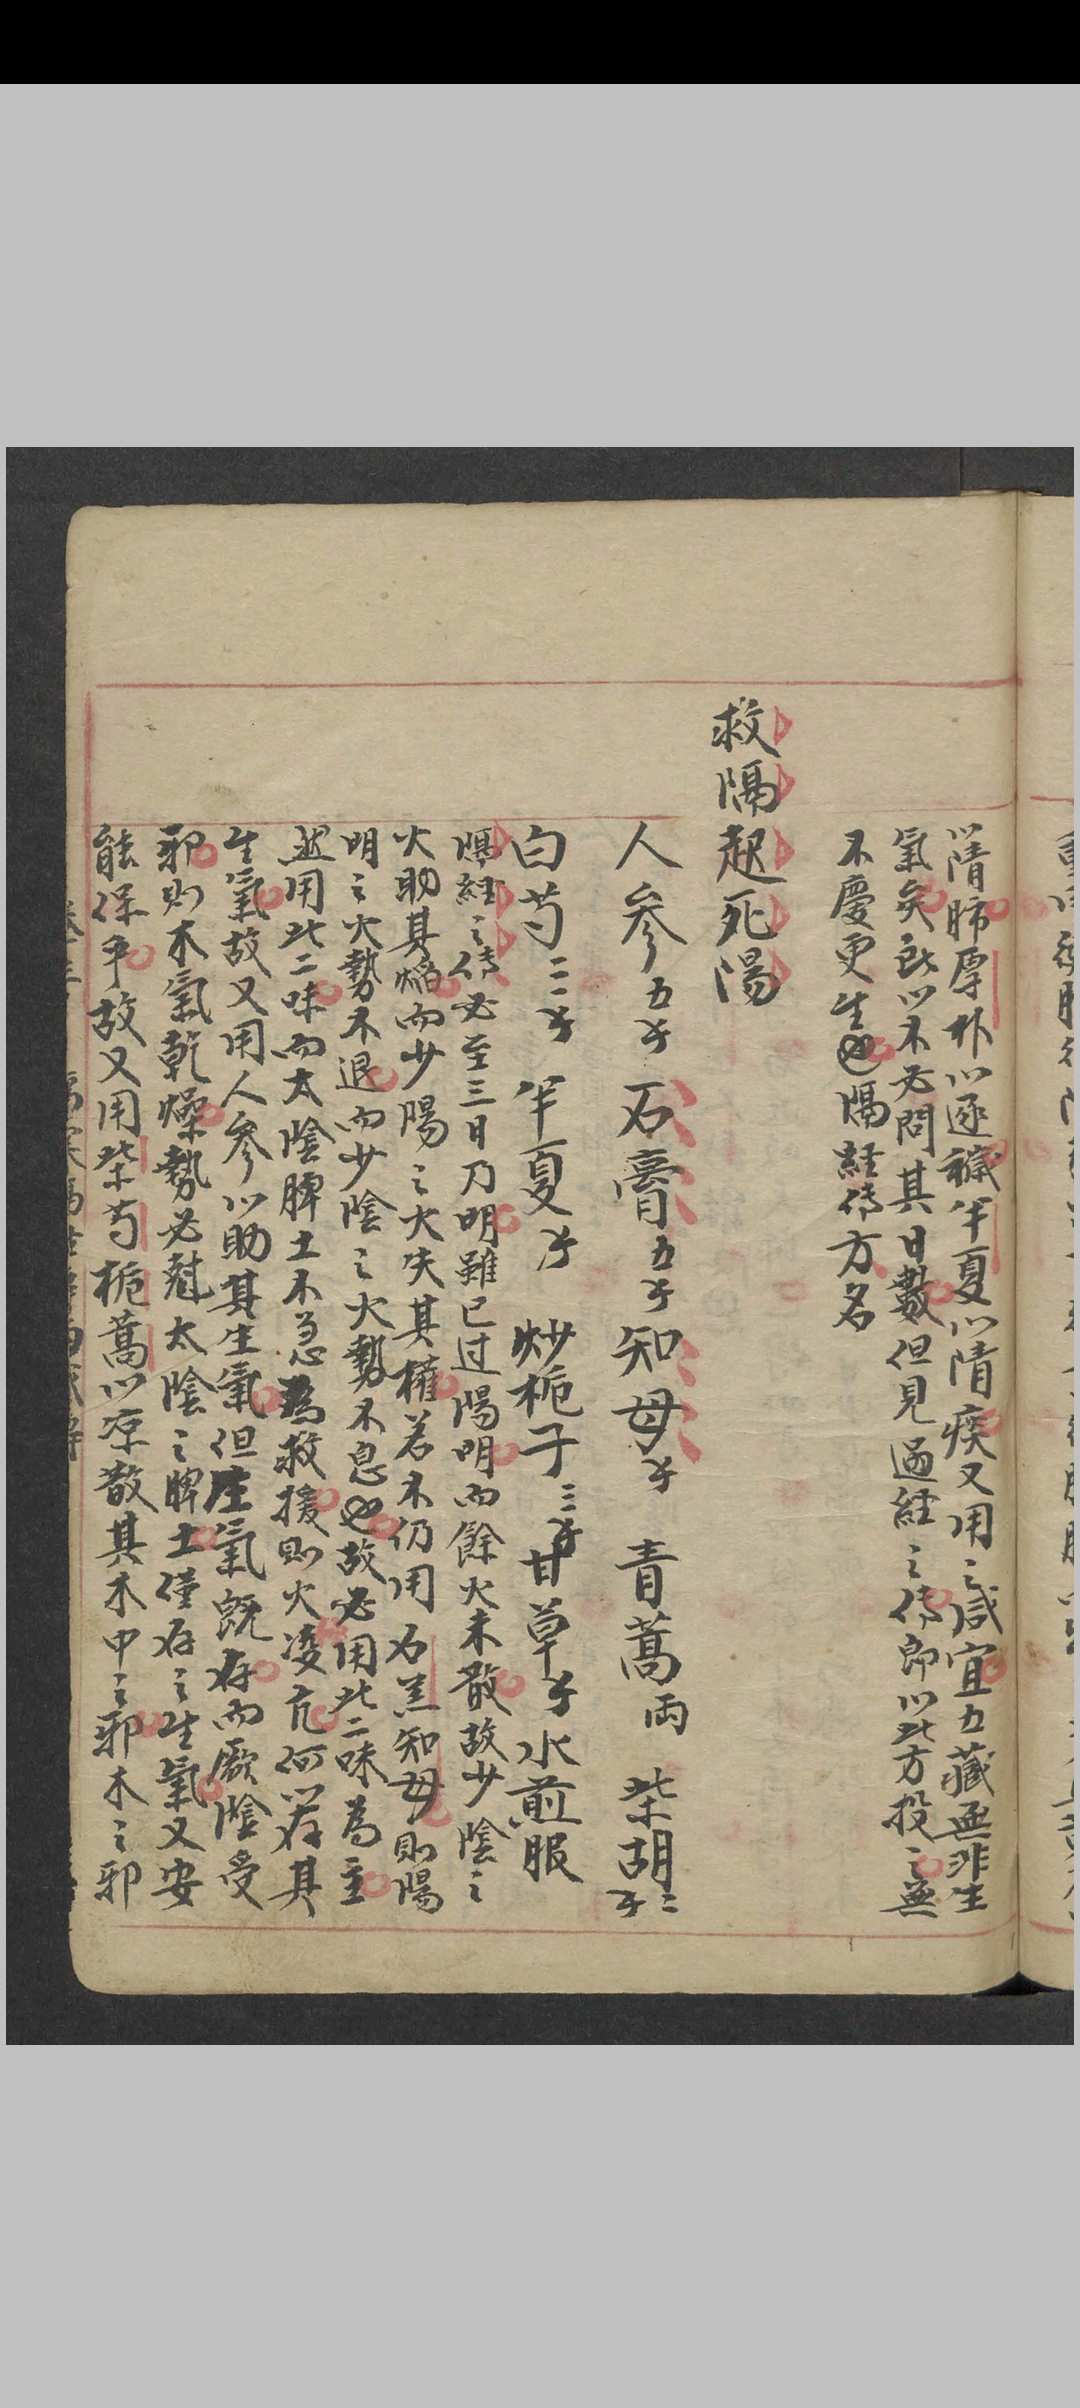 以隋肺厚朴以逐穢半夏以隋痰又用之咸宜五藏無非生
氣矣所以不必問其日數但見過經之傳即以此方投之無
不慶更生也隔經傳方名
救隔起死湯
人參五子石膏五子知母子青蒿兩柴胡二子
白芍三子半夏子炒梔子三子甘草子水煎服
隔經之傳必至三日乃明雖已过陽明而餘火未散故少陰之
火助其焰而少陽之火失其權若不仍用石羔知母則陽
明之火勢不退而少陰之火勢不息也故必用此二味為主
然用此二味而太陰脾土不急為救援則火凌亢何以存其
生氣故又用人參以助其生氣但生氣既存而厥陰受
邪則木氣乾燥勢必尅太陰之脾土僅存之生氣又安
能保乎故又用柴芍梔蒿以凉散其木中之邪木之邪